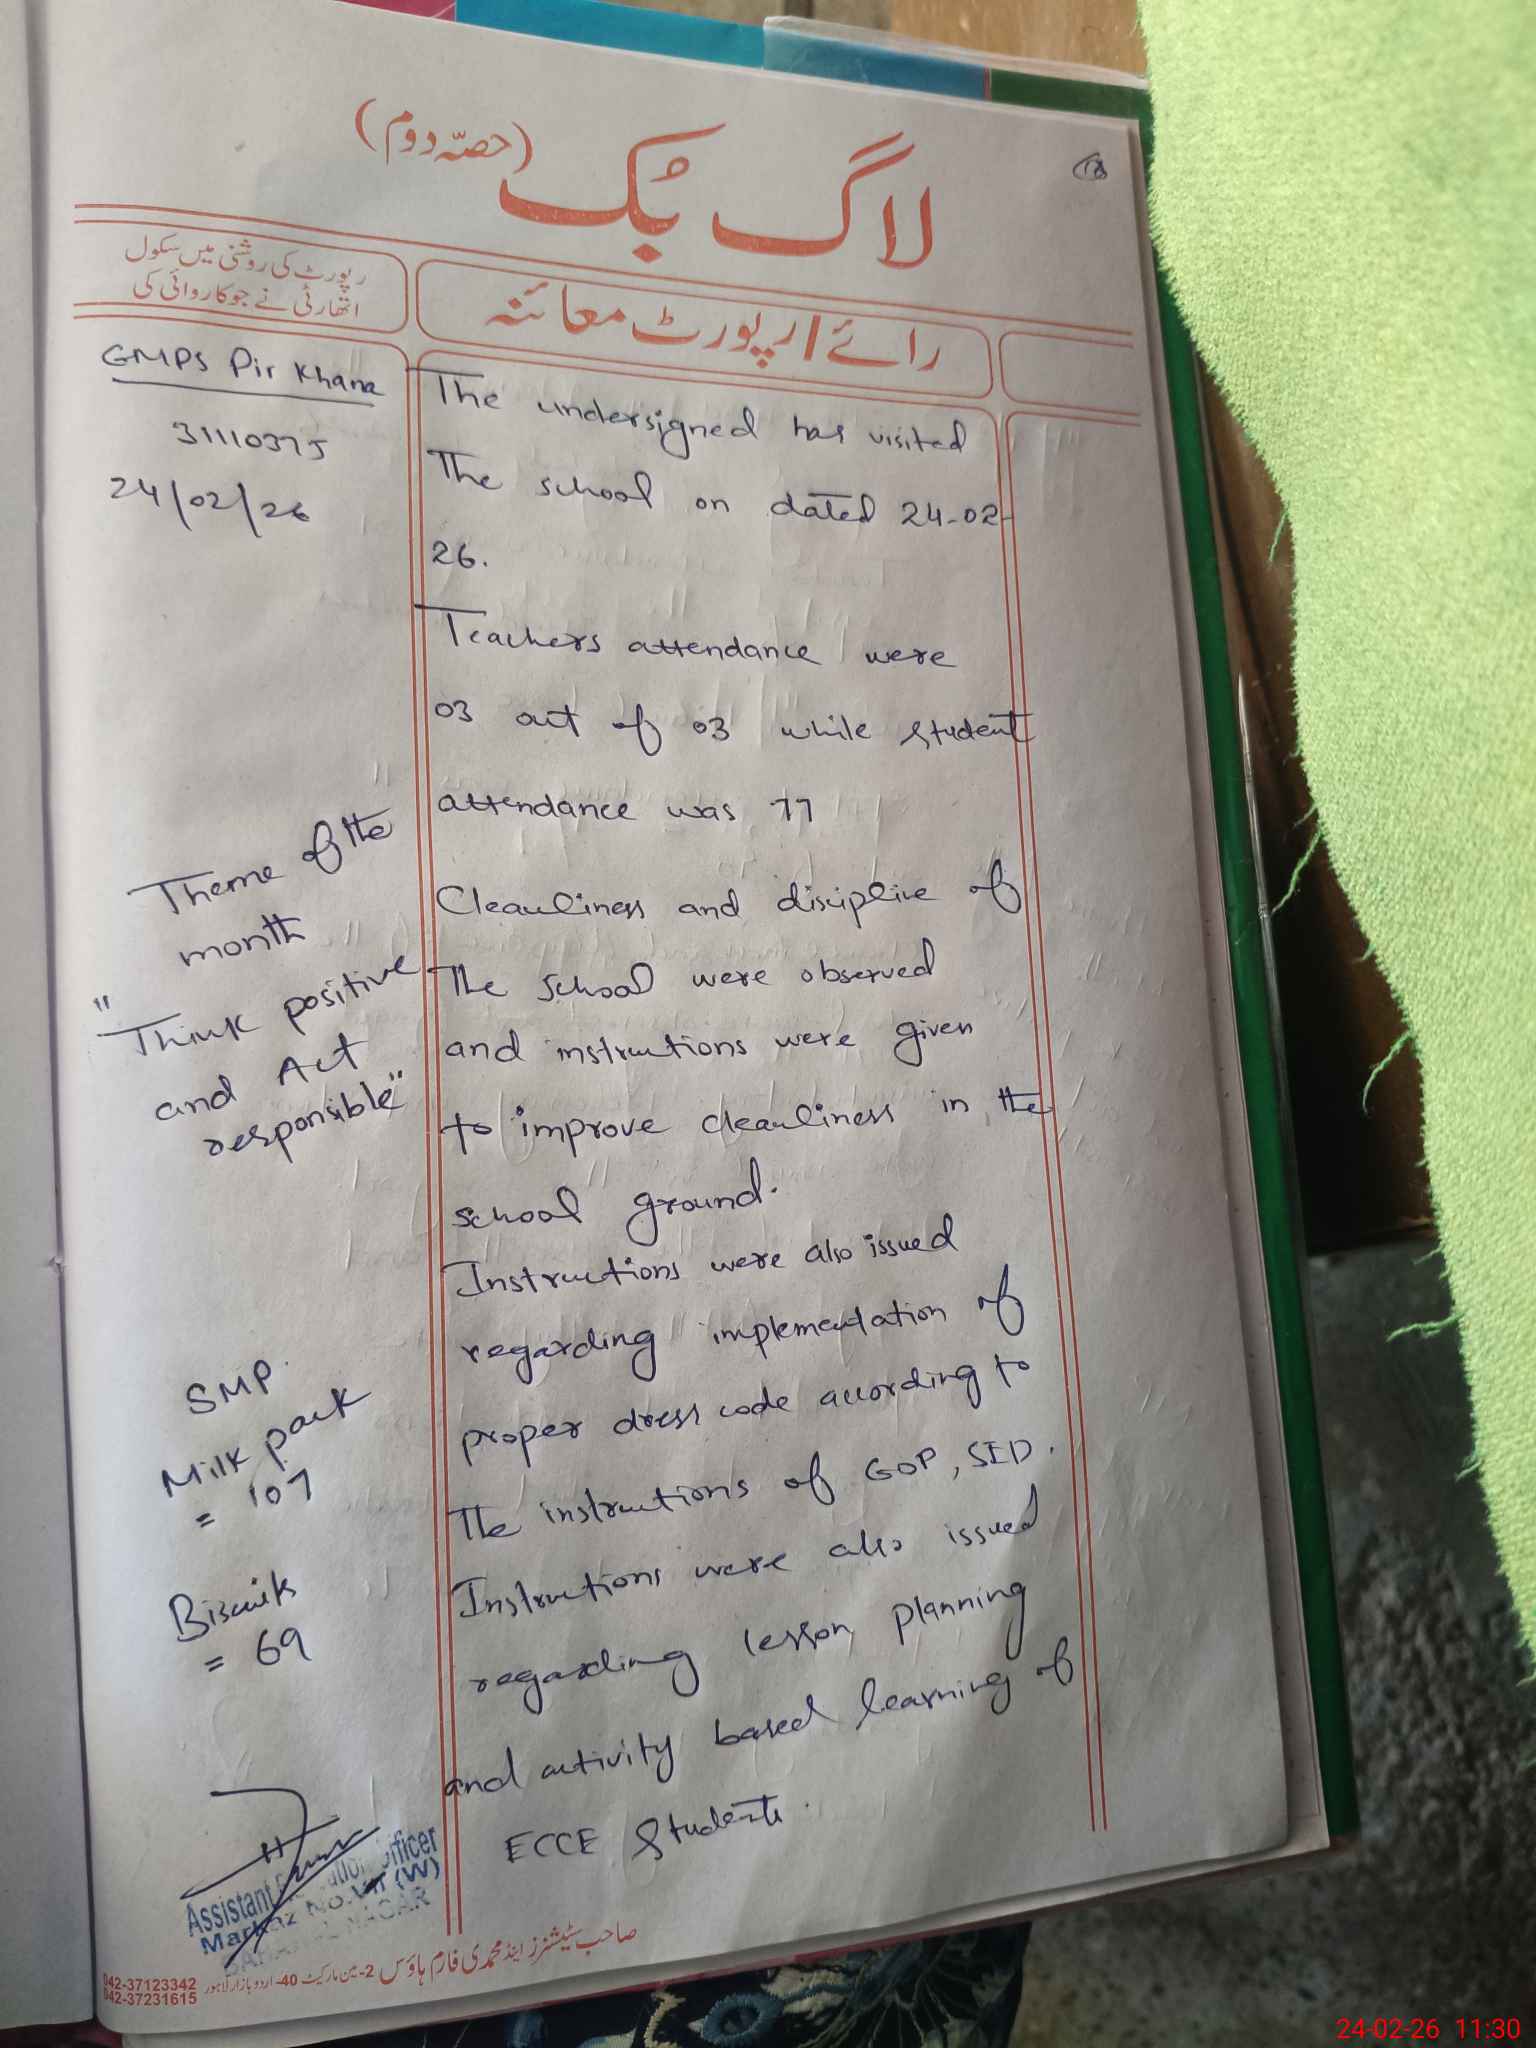 لاگ بُک (حصّہ دوم)
18
رپورٹ کی روشنی میں سکول
اتھارٹی نے جو کاروائی کی
رائے / رپورٹ معائنہ
GMPS Pir Khana
31110375
24/02/26
Theme of the
month
"Think positive
and Act
responsible"
SMP.
Milk pack
= 107
Biscuits
= 69
The undersigned has visited
The school on dated 24-02-
26.
Teachers attendance were
03 out of 03 while student
attendance was 77
Cleanliness and discipline of
The school were observed
and instructions were given
to improve cleanliness in the
school ground.
Instructions were also issued
regarding implementation of
proper dress code according to
The instructions of GOP, SED.
Instructions were also issued
regarding lesson planning
and activity based learning of
ECCE Students.
Assistant Education Officer
Markaz No.VII (W)
NAGAR
صاحب سٹیشنرز اینڈ محمدی فارم ہاؤس 2-مین مارکیٹ 40-اردو بازار لاہور
042-37123342
042-37231615
24-02-26 11:30